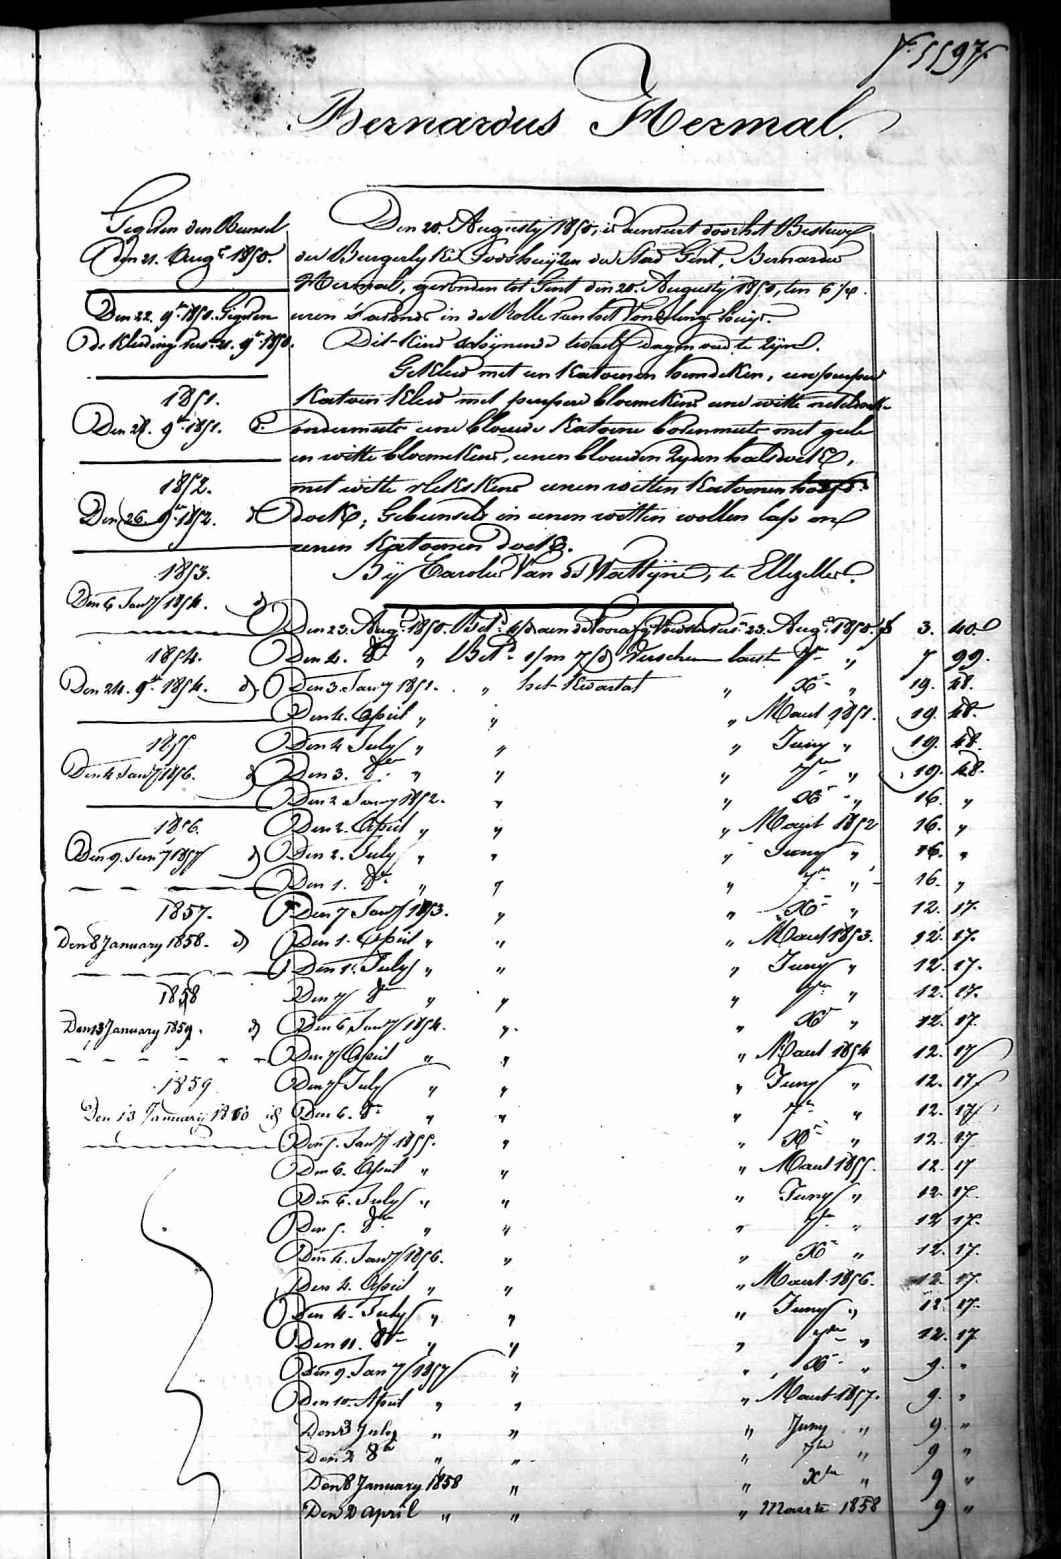 Bernardus Hermal.
Gegeven den Bunsel
Den 21. Augt 1850.
Den 22. 9bre 1850. Gegeven
de kleeding
1851.
Den 9bre 1851.
1852.
Den 26. 9bre 1852.
1853.
Den 6 Jany 1854.
1854.
Den 24. 9bre 1854.
1855
Den 4 Jany 1856.
1856.
Den 9. Jany 1857
1857.
Den 8 January 1858.
1858
Den 13 January 1859.
1859
Den 13 January 1860
Den 20. Augusty 1850, is door het Bestuur
der Burgerlyke Godshuyzen der Stad Gent, Bernardus
Hermal, gevonden tot Gent den 20. Augusty 1850, ten
uren s'avonds in de Rolle van het Vondelings huys.
Dit kind schynende twaelf dagen oud te zyn.
Gekleed met een katoenen hemdeken, een purper
katoen kleed met purpere bloemekens eene witte
ondermuts eene blauwe katoene bovenmuts met geele
en witte bloemekens, eenen blauwen zyden halsdoek,
met witte vlekskens eenen witten katoenen
doek, Gebunseld in eenen witten wollen laps en
eenen katoenen doek.
By Carolus Van de Wattyne, te Ellezelles.
Den 23. Augt 1850. Betd 23. Augt 1850. f 3. 40.
Den 4. 8bre " Betd 7bre " 7 99.
Den 3. Jany 1851. " het kwartal " Xbre " 19. 48.
Den 4. April " " " Maart 1851. 19. 48.
Den 4 July " " " Juny " 19. 48.
Den 3. 8bre " " " 7bre " 19. 48.
Den 2 Jany 1852. " " Xbre " 16. "
Den 2. April " " " Maart 1852 16. "
Den 2. July " " " Juny " 16. "
Den 1. 8bre " " " 7bre " 16. "
Den 7 Jany 1853. " " Xbre " 12. 17.
Den 1. April " " " Maart 1853. 12. 17.
Den 1. July " " " Juny " 12. 17.
Den 7 8bre " " " 7bre " 12. 17.
Den 6 Jany 1854. " " Xbre " 12. 17.
Den 7 April " " " Maart 1854 12. 17
Den 7 July " " " Juny " 12. 17
Den 6. 8bre " " " 7bre " 12. 17
Den 5. Jany 1855. " " Xbre " 12. 17
Den 6. April " " " Maart 1855. 12. 17
Den 6. July " " " Juny " 12. 17.
Den 5. 8bre " " " 7bre " 12 17.
Den 4. Jany 1856. " " Xbre " 12. 17.
Den 4. April " " " Maart 1856. 12. 17.
Den 4. July " " " Juny " 12. 17.
Den 11. 8bre " " " 7bre " 12. 17
Den 9. Jany 1857 " " Xbre " 9. "
Den 10. April " " " Maart 1857. 9. "
Den 3 July " " " Juny " 9 "
Den 2 8bre " " " 7bre " 9 "
Den 8 January 1858 " " Xbre " 9 "
Den 2 April " " " Maarte 1858 9 "